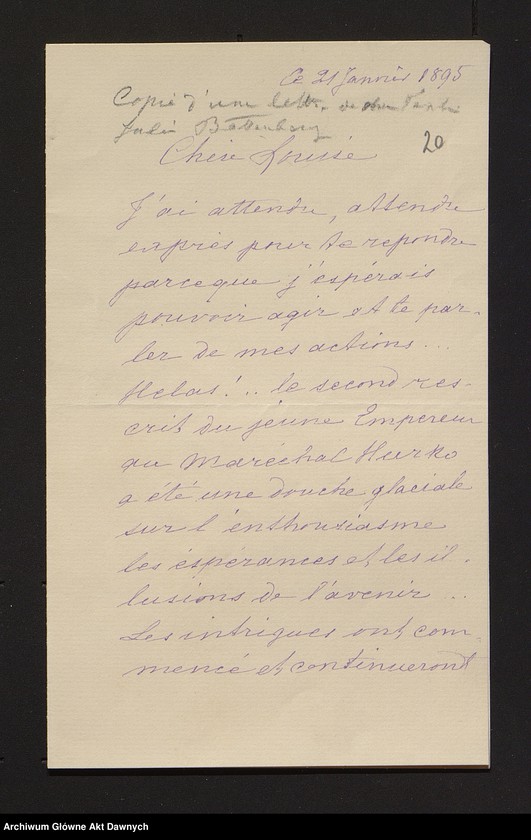 Ce 21 Janvier 1895
Copie d'une lettre de
Julie Battenberg
20
Chère Louise
J'ai attendu, attendu
exprès pour te repondre
parceque j'espérais
pouvoir agir et te par-
ler de mes actions...
Helas!.. le second res-
crit du jeune Empereur
au Maréchal Hurko
a été une douche glaciale
sur l'enthousiasme
les espérances et les il-
lusions de l'avenir..
Les intrigues ont com-
mencé et continueront
Archiwum Główne Akt Dawnych